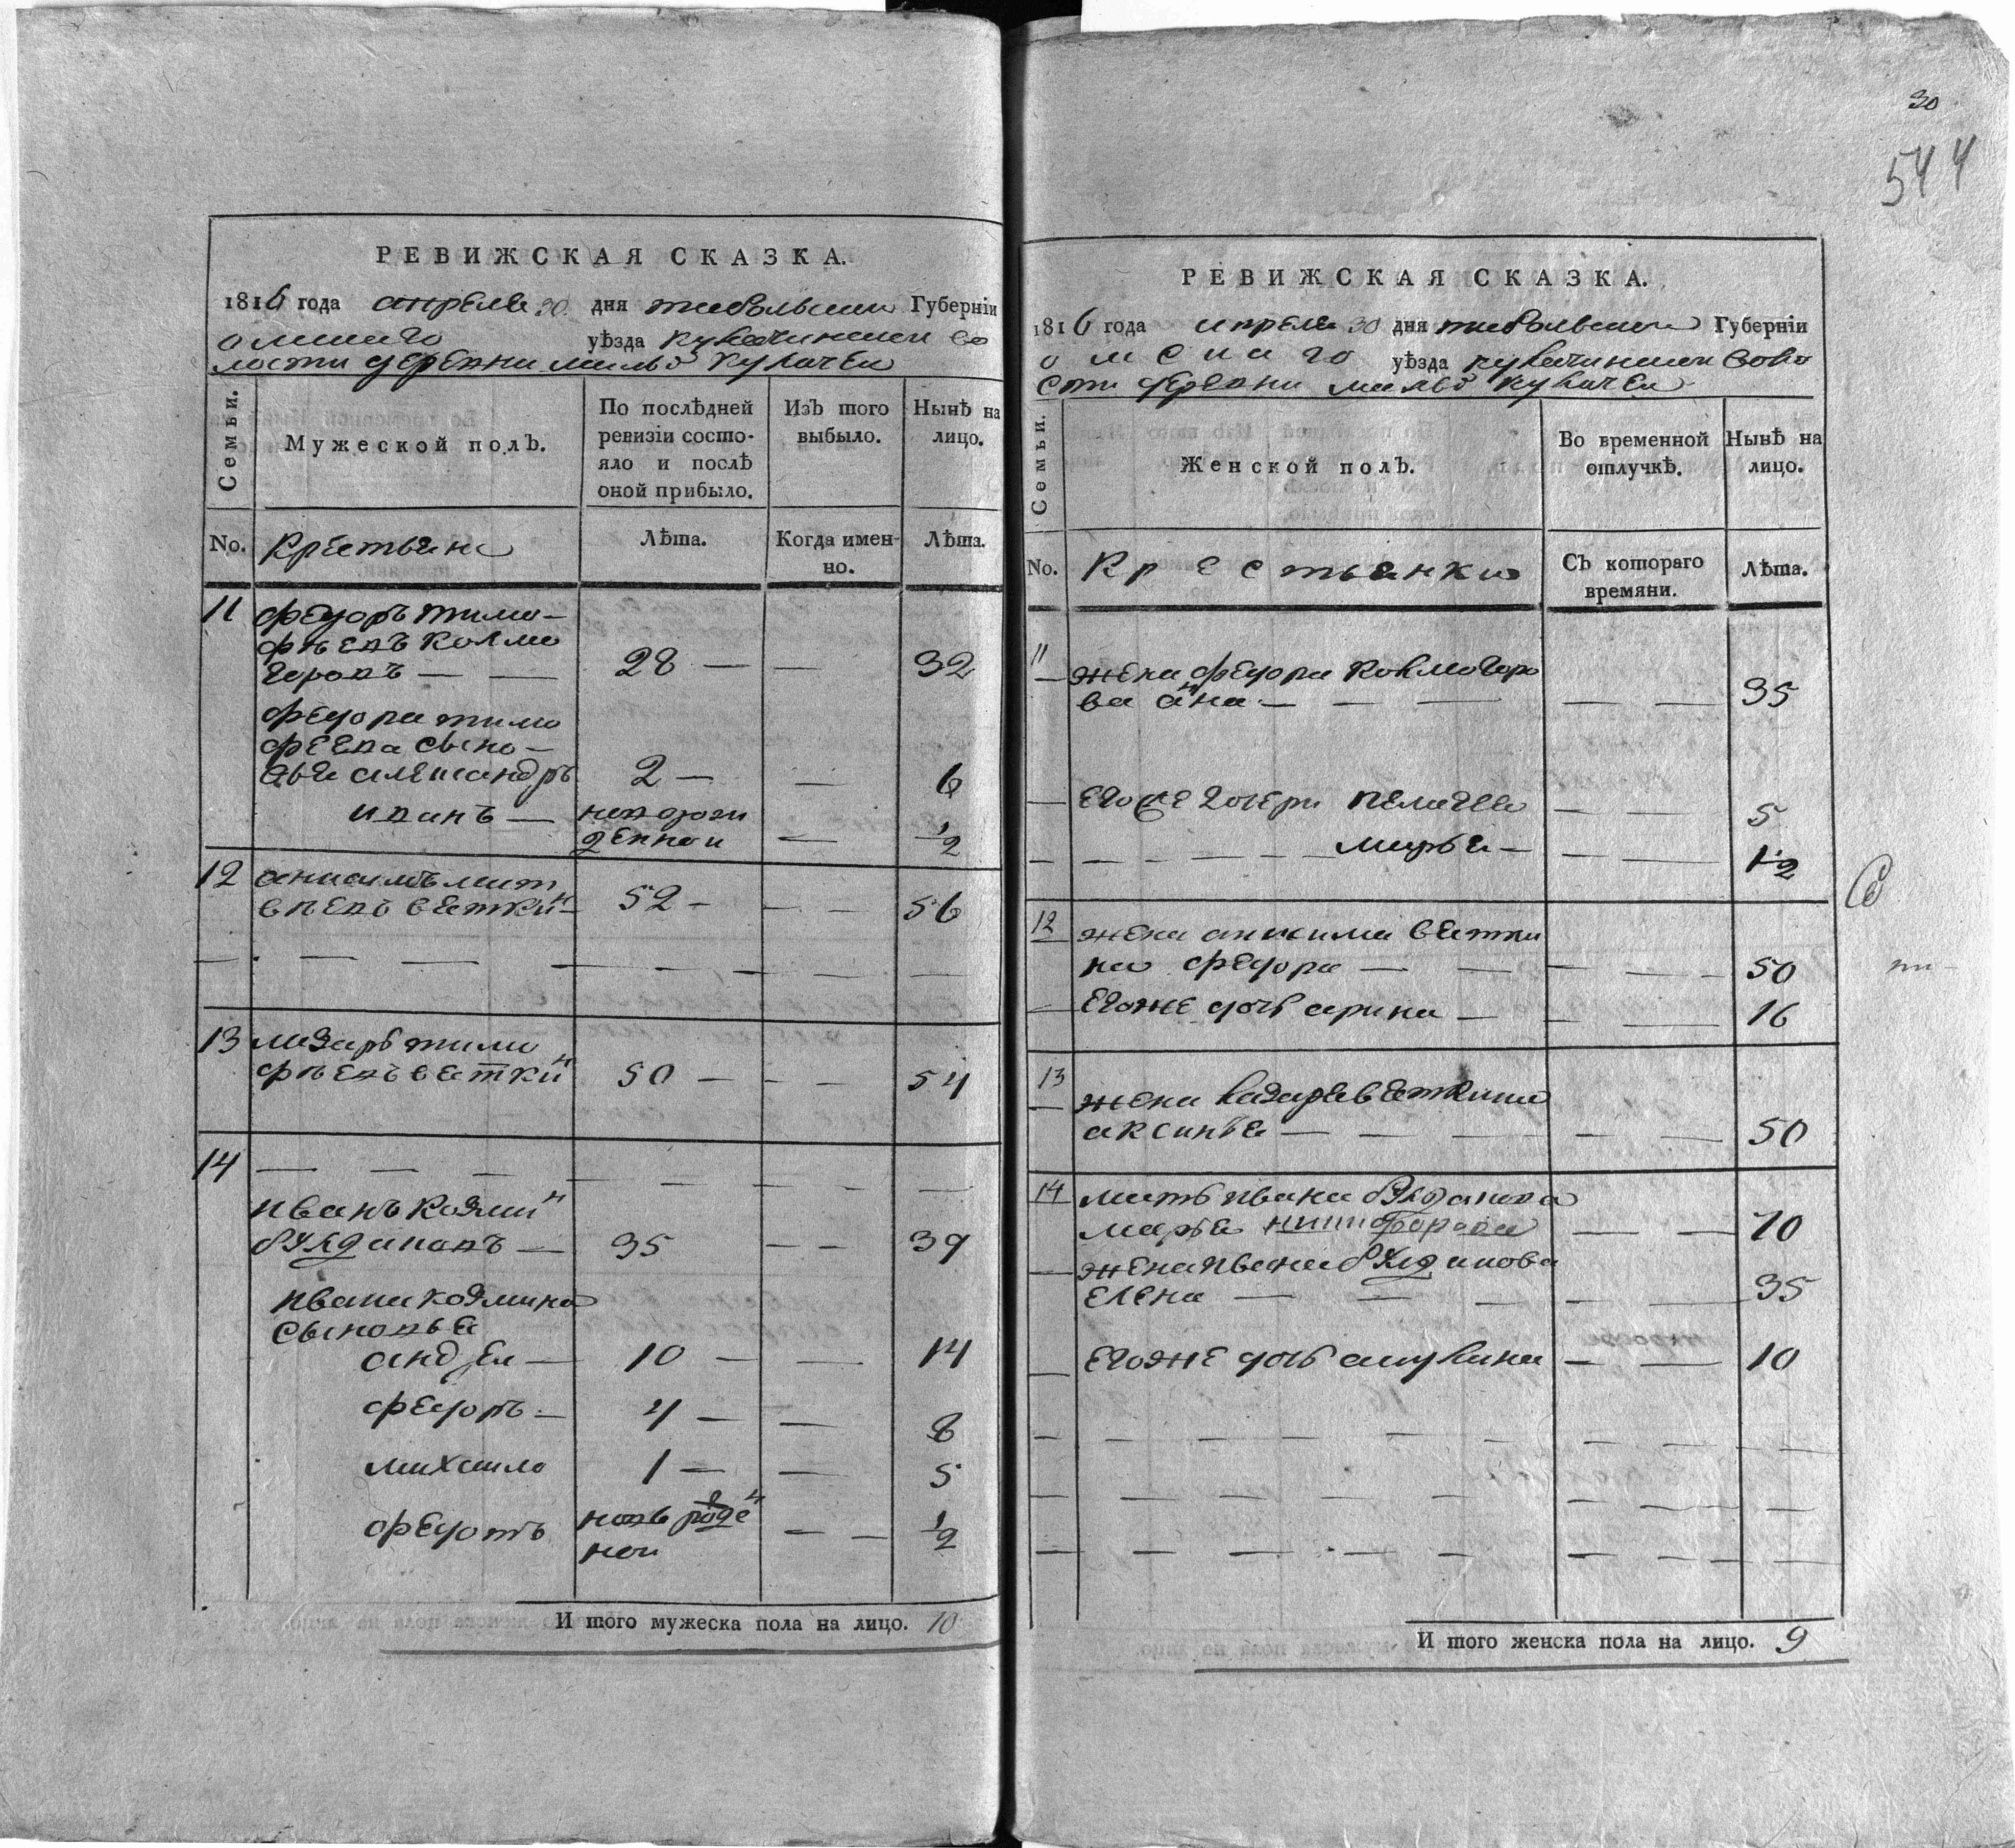 РЕВИЖСКАЯ СКАЗКА.
1816 года апреля 30 дня тобольской Губерніи
омскаго уѣзда кулачинской во
лости деревни мало кулачей
Семьи.
Мужеской полъ.
По послѣдней
ревизіи состо-
яло и послѣ
оной прибыло.
Изъ того
выбыло.
Нынѣ на
лицо.
No. крестьяне
Лѣта.
Когда имен-
но.
Лѣта.
11 федоръ тимо-
фѣевъ колмо
горовъ — — 28 — — 32
федора тимо
феева сыно-
вья александръ 2 — — 6
иванъ — новорож
денной — 1/2
12 анисимъ мат
вѣевъ вяткин 52 — — — 56
13 лазарь тимо
фѣевъ вяткин 50 — — — 54
14 — — —
иванъ козмин
— 35 — — 39
ивана козмина
сыновья
андрей — 10 — — 14
федоръ — 4 — — 8
михаило 1 — — 5
федотъ новорожден
ной — — 1/2
И того мужеска пола на лицо. 10
30
544
РЕВИЖСКАЯ СКАЗКА.
1816 года апреля 30 дня тобольской Губерніи
омскаго уѣзда кулачинской воло
сти деревни мало кулачей
Семьи.
Женской полъ.
Во временной
отлучкѣ.
Нынѣ на
лицо.
No. крестьянки
Съ котораго
времяни.
Лѣта.
11 жена федора колмогоро
ва анна — — — — — 35
его же дочери пелагея — — 5
марья — — — 1 1/2
12 жена анисима вятки
на федора — — — — — 50
его же дочь арина — — — 16
13 жена лазаря вяткина
аксинья — — — — — 50
14 мать ивана
марья никифорова — — 70
жена ивана
елена — — — — — 35
его же дочь акулина — — 10
И того женска пола на лицо. 9